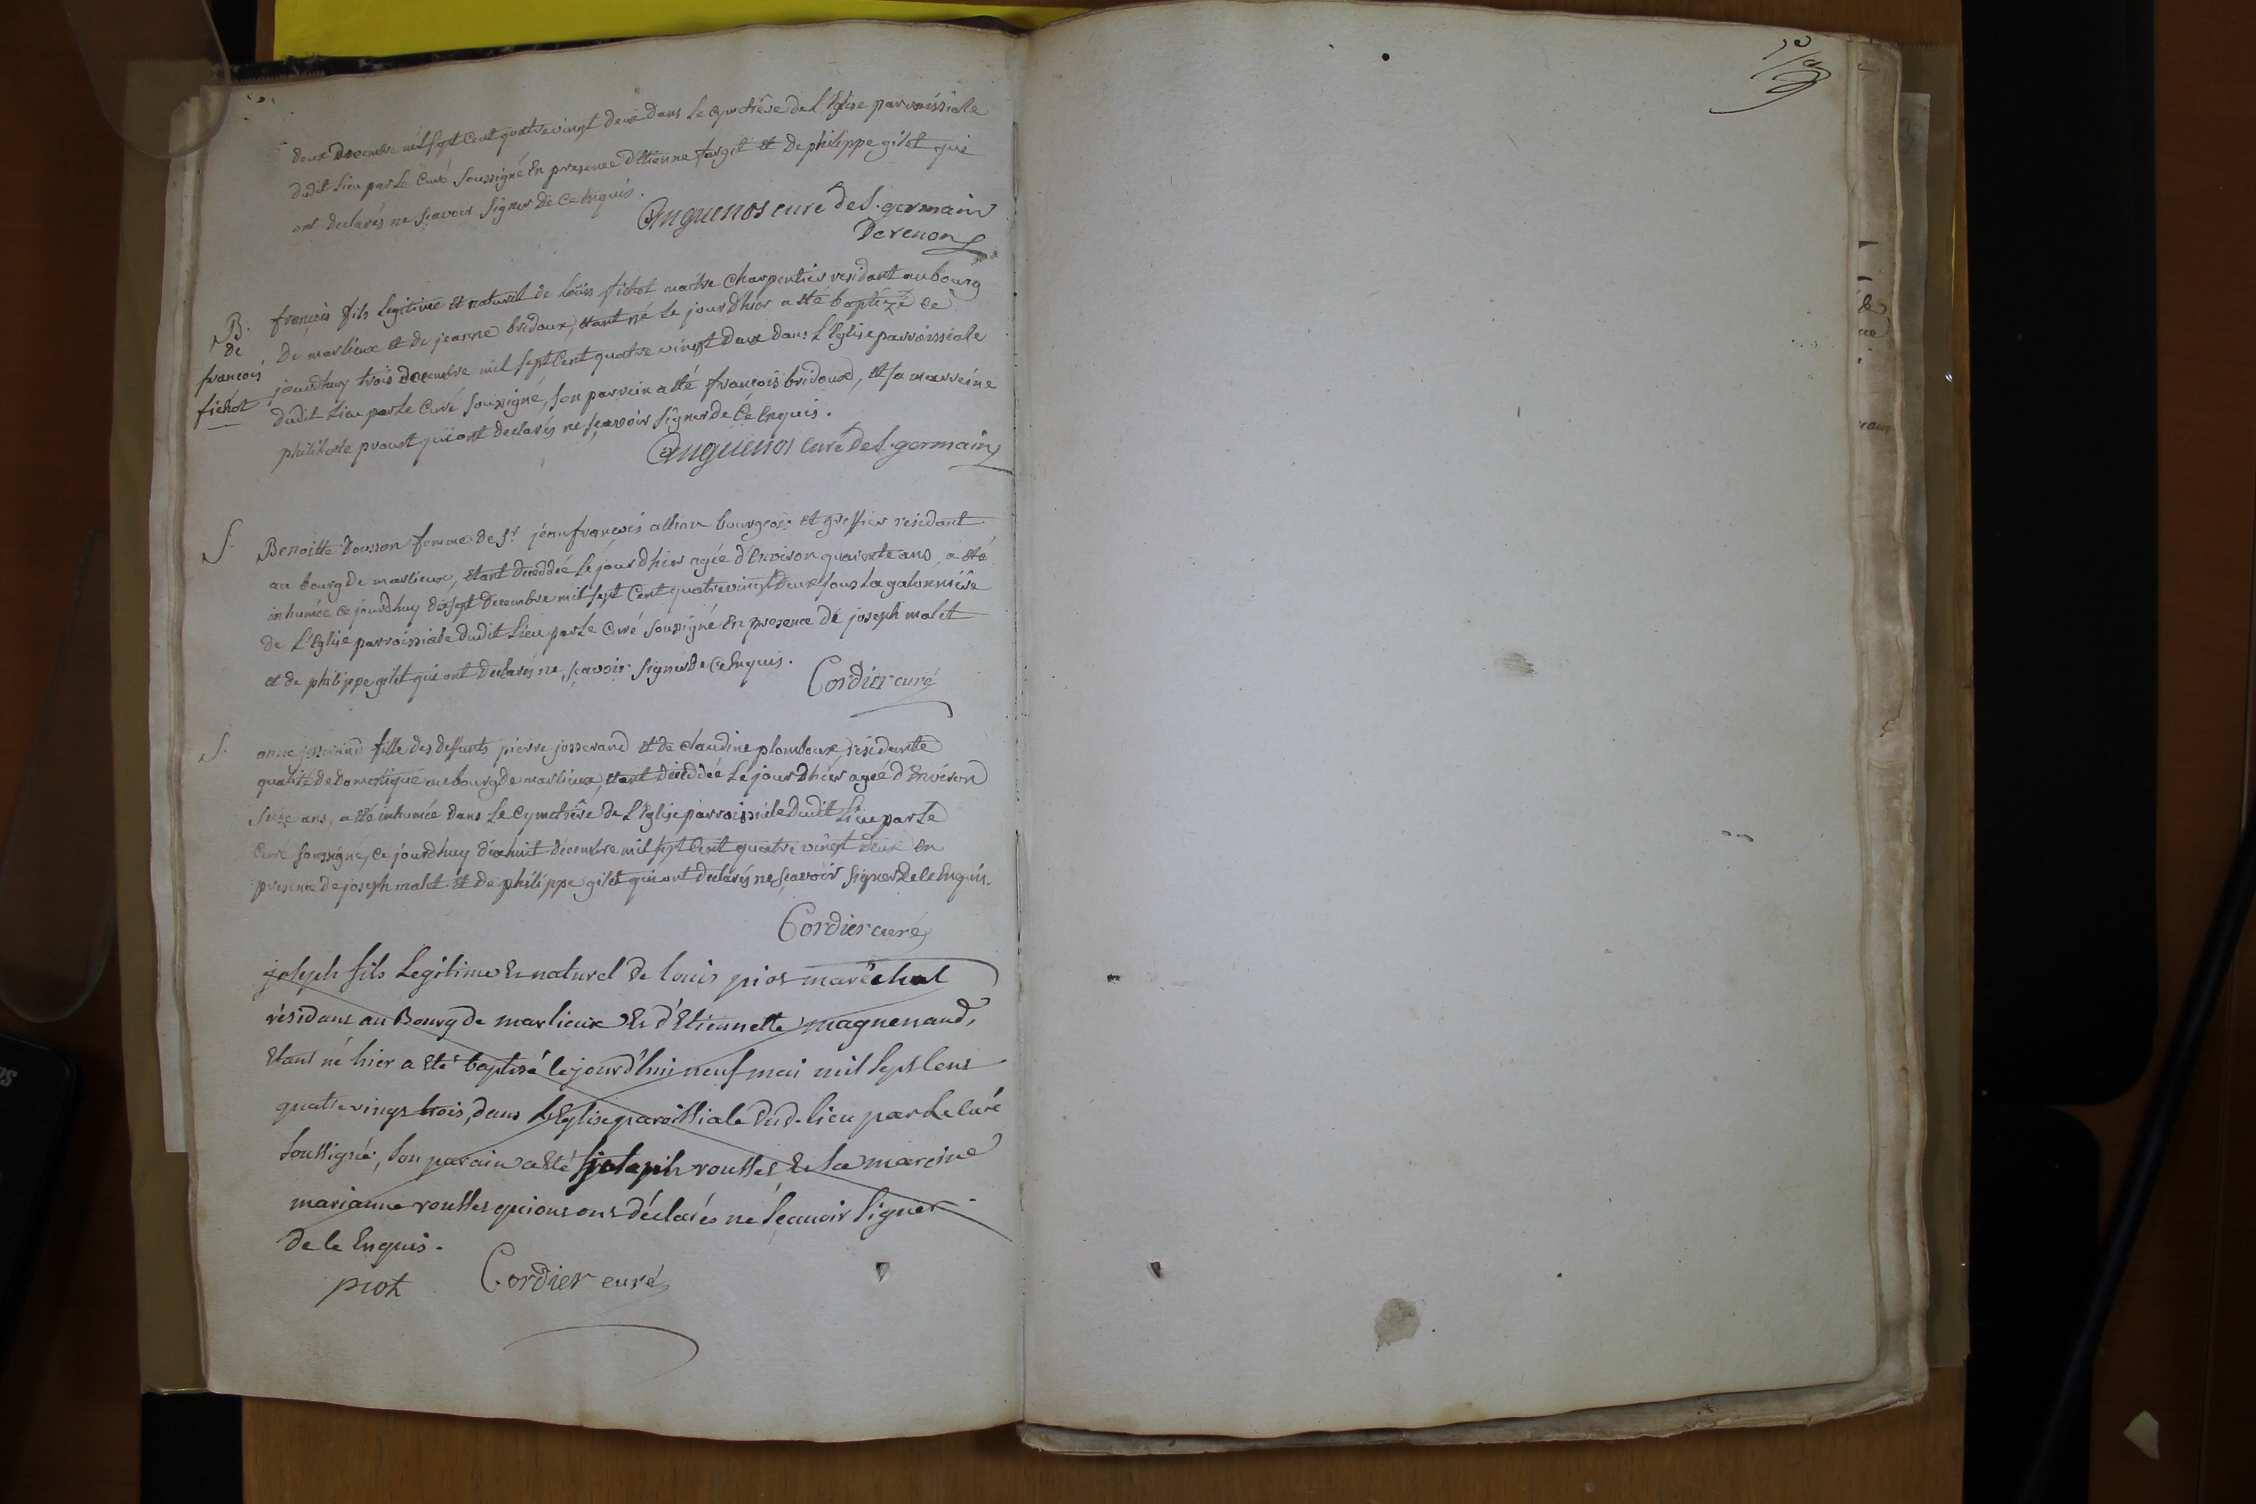 deux decembre mil sept Cent quatre vingt deux dans Le Cymetiêre de L'Eglise parroissiale
dudit Lieu par Le Curé Soussigné En presence d'Etienne fargit et de philippe gilet qui
ont declarés ne sçavoir signer de Ce Enquis.
Anguenos curé de S. germain
de renon
B.
de
francois
fichot
françois fils Legitime et naturel de Loüis fichot maitre Charpentier residant au bourg
de marlieux et de jeanne bridoux, étant né Le jour d'hier a eté baptizé Ce
jourd'huy trois decembre mil sept Cent quatre vingt deux dans L'Eglise parroissiale
dudit Lieu par Le Curé soussigné, son parrein a eté francois bridoux, et sa marreine
philiberte proust qui ont declarés ne sçavoir signer de Ce Enquis.
Anguenos curé de S. germain
S.
Benoitte dousson femme de Sr. jean françois bourgeois et greffier residant
au bourg de marlieux, étant decedée Le jour d'hier agée d'Environ quarente ans, a eté
inhumée Ce jourd'huy dix sept decembre mil sept Cent quatre vingt deux sous La galonniêre
de L'Eglise parroissiale dudit Lieu par Le Curé soussigné En presence de joseph malet
et de philippe gilet qui ont declarés ne sçavoir signer de Ce Enquis.
Cordier curé
S.
anne josserand fille des deffunts pierre josserand et de Claudine plomboux, residante
qualité de domestique au bourg de marlieux, étant decedée Le jour d'hier agée d'Environ
seize ans, a eté inhumée dans Le Cymetiêre de L'Eglise parroissiale dudit Lieu par Le
Curé soussigné, Ce jourd'huy dix huit decembre mil sept Cent quatre vingt deux En
presence de joseph malet et de philippe gilet qui ont declarés ne sçavoir signer de Ce Enquis.
Cordier curé
joseph fils Legitime et naturel de louis piot maréchal
résidant au Bourg de marlieux et d'Etiennette magnenaud,
étant né hier a été baptisé cejourd'hui neuf mai mil sept cent
quatre vingt trois, dans L'Eglise paroissiale dud. lieu par le curé
soussigné, son parain a été joseph rousset et sa mareine
marianne rousset qui ont déclarés ne sçauoir signer
de ce Enquis.
piot Cordier curé